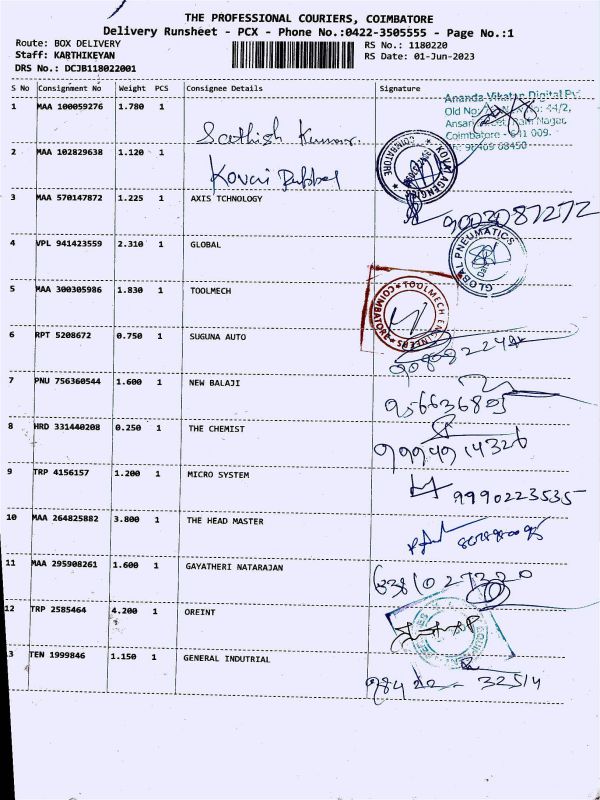 THE PROFESSIONAL COURIERS, COIMBATORE
Delivery Runsheet - PCX - Phone No.:0422-3505555 - Page No.:1
Route: BOX DELIVERY
Staff: KARTHIKEYAN
DRS No.: DCJB118022001
RS No.: 1180220
RS Date: 01-Jun-2023
S No Consignment No Weight PCS Consignee Details Signature
1 MAA 100059276 1.780 1 Sathish Kumar
Ananda Vikatan Digital Pvt
Coimbatore - 641 009.
2 MAA 102829638 1.120 1 Kovai Rubber
COIMBATORE
3 MAA 570147872 1.225 1 AXIS TCHNOLOGY 9003087272
4 VPL 941423559 2.310 1 GLOBAL
GLOBAL PNEUMATICS
5 MAA 300305986 1.830 1 TOOLMECH
TOOLMECH ENGINEERS COIMBATORE
6 RPT 5208672 0.750 1 SUGUNA AUTO
7 PNU 756360544 1.600 1 NEW BALAJI
8 HRD 331440208 0.250 1 THE CHEMIST
9 TRP 4156157 1.200 1 MICRO SYSTEM 9990223535
10 MAA 264825882 3.800 1 THE HEAD MASTER
11 MAA 295908261 1.600 1 GAYATHERI NATARAJAN
12 TRP 2585464 4.200 1 OREINT
13 TEN 1999846 1.150 1 GENERAL INDUTRIAL